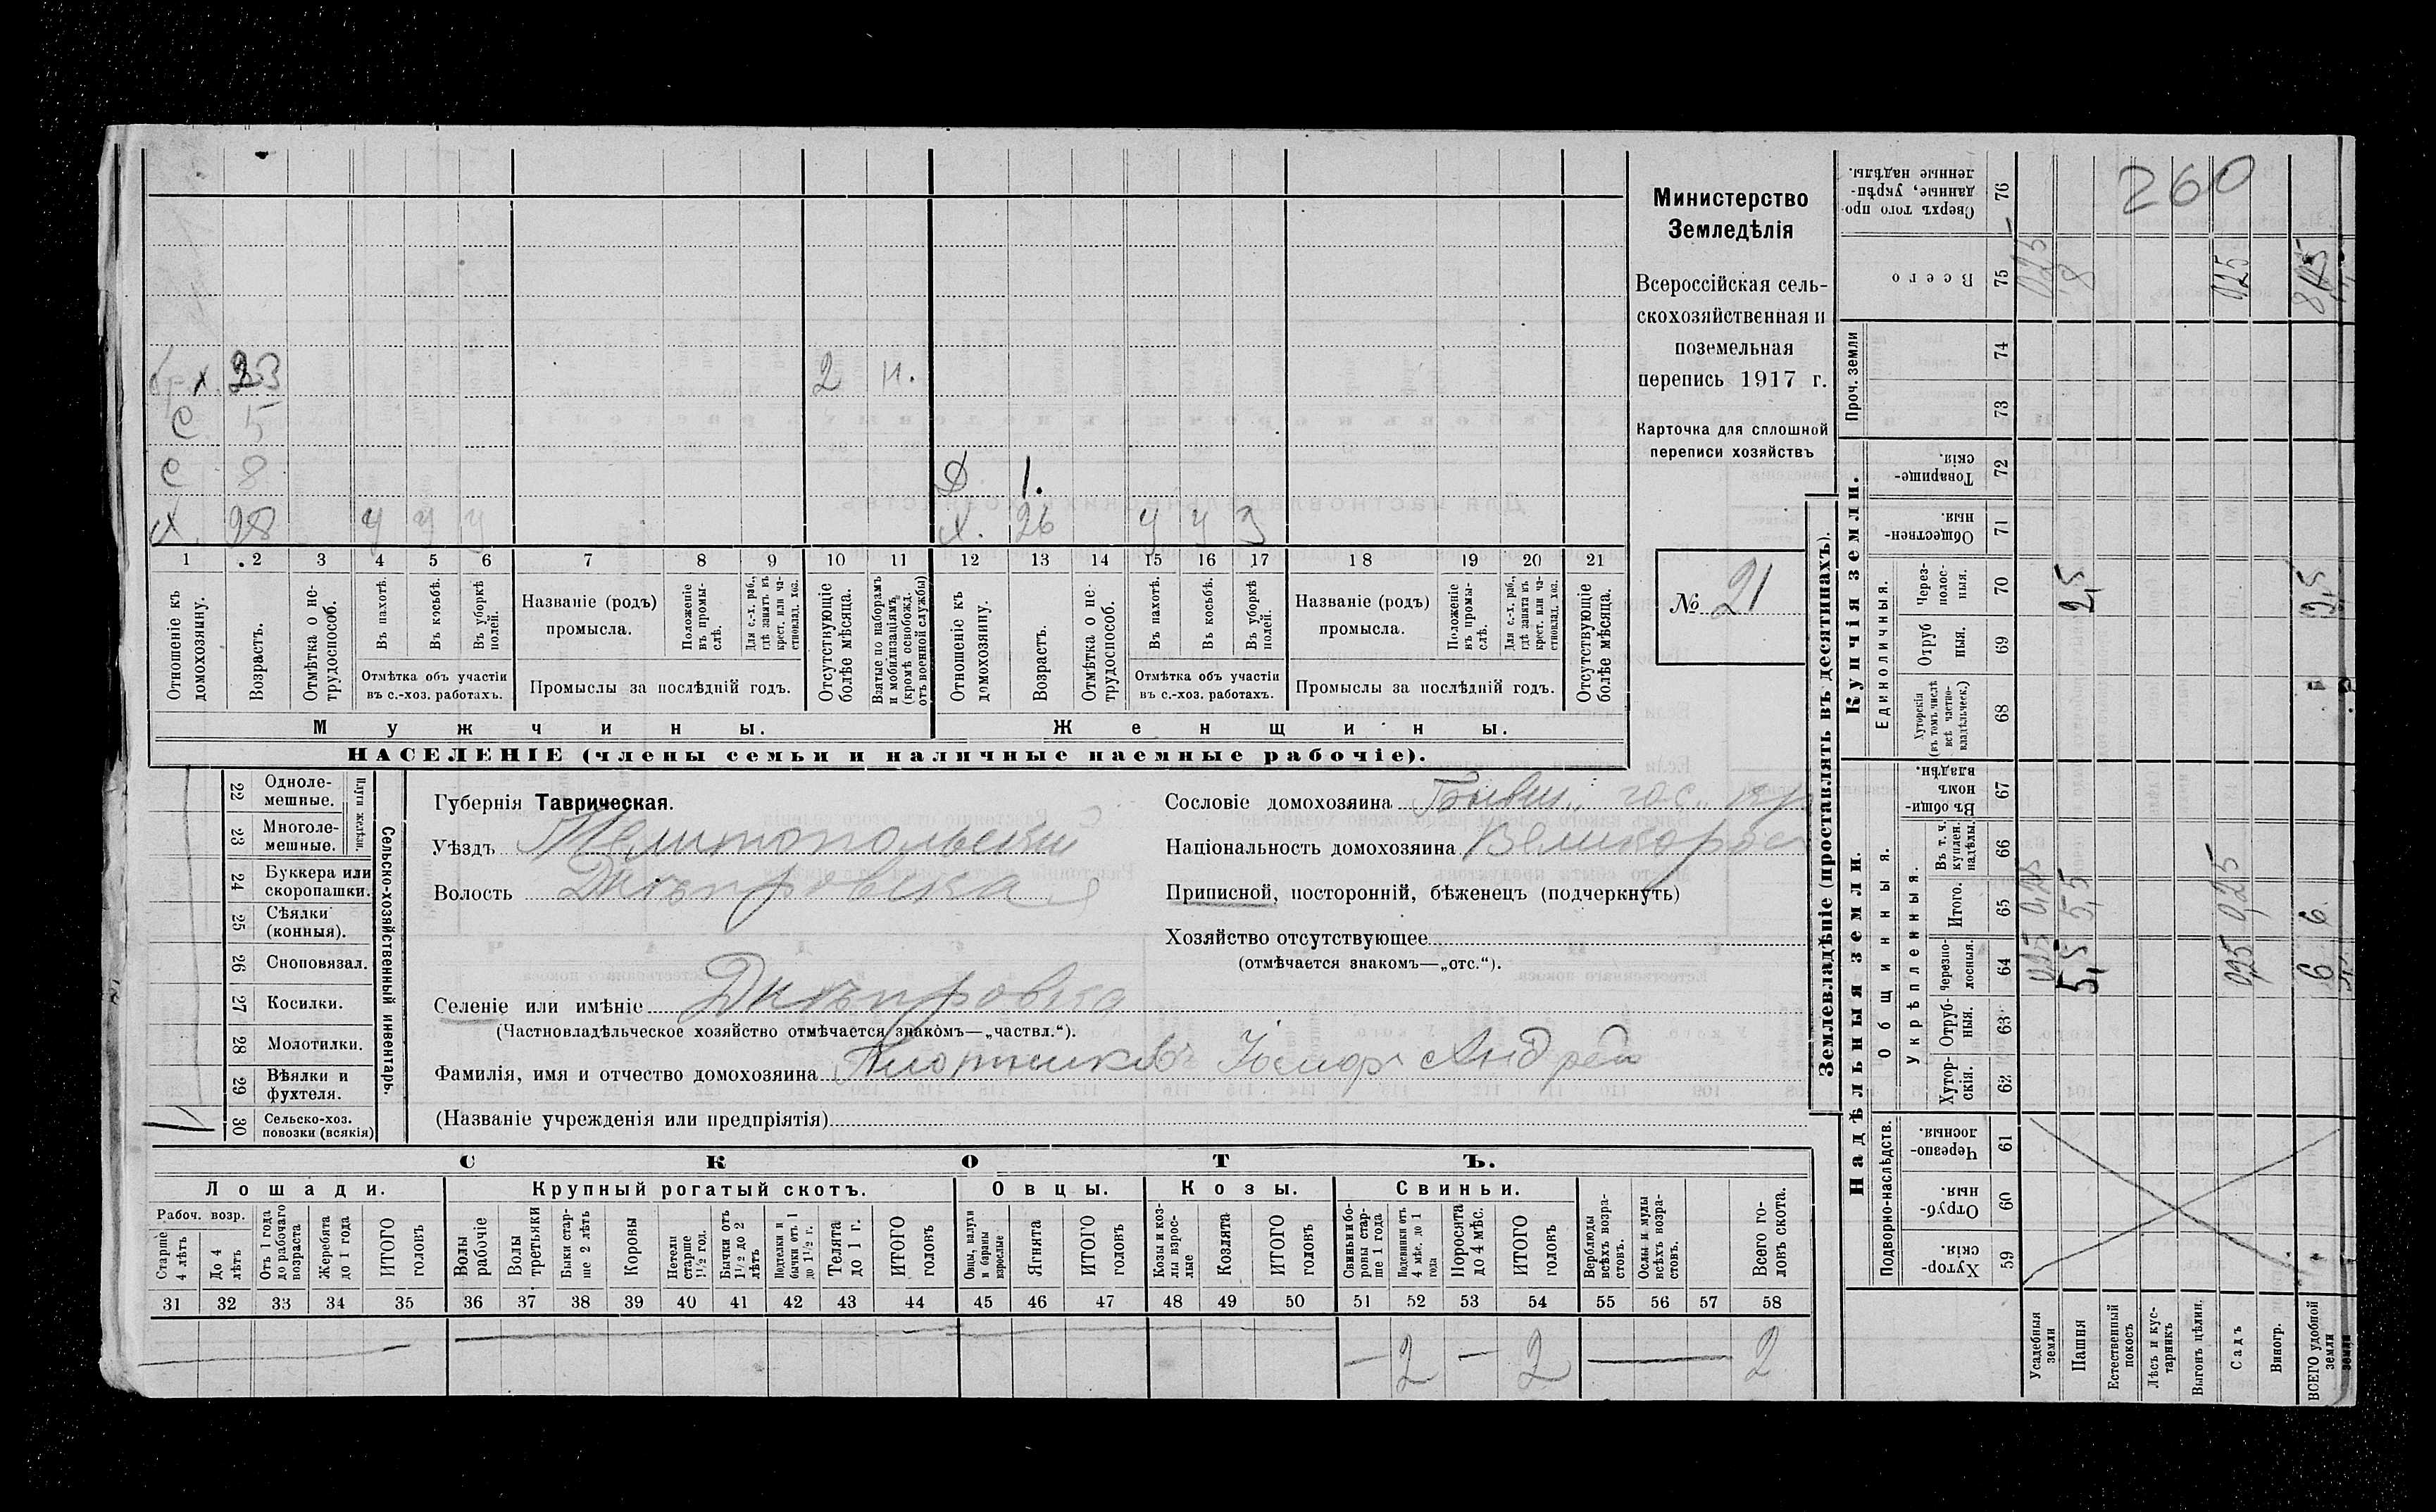 260
Министерство
Земледѣлія
Всероссійская сель-
скохозяйственная и
поземельная
перепись 1917 г.
Карточка для сплошной
переписи хозяйствъ
№ 21
23 2 н.
С 5
С 8 Д. 1.
Х. 28 ч ч ч Х. 26 ч ч
1 2 3 4 5 6 7 8 9 10 11 12 13 14 15 16 17 18 19 20 21
Отношеніе къ домохозяину.
Возрастъ.
Отмѣтка о не-трудоспособ.
Въ пахотѣ.
Въ косьбѣ.
Въ уборкѣ полей.
Отмѣтка объ участіи
въ с.-хоз. работахъ.
Названіе (родъ)
промысла.
Положеніе въ промы-слѣ.
Для с.-х. раб., гдѣ занятъ въ крест. или ча-стновлад. хоз.
Промыслы за послѣдній годъ.
Отсутствующіе болѣе мѣсяца.
Взятые по наборамъ и мобилизаціямъ (кромѣ освобожд. отъ военной службы)
Отношеніе къ домохозяину.
Возрастъ.
Отмѣтка о не-трудоспособ.
Въ пахотѣ.
Въ косьбѣ.
Въ уборкѣ полей.
Отмѣтка объ участіи
въ с.-хоз. работахъ.
Названіе (родъ)
промысла.
Положеніе въ промы-слѣ.
Для с.-х. раб., гдѣ занята въ крест. или ча-стновлад. хоз.
Промыслы за послѣдній годъ.
Отсутствующіе болѣе мѣсяца.
Мужчины.
Женщины.
НАСЕЛЕНІЕ (члены семьи и наличные наемные рабочіе).
Сельско-хозяйственный инвентарь.
Плуги желѣзн.
22 Одноле-мешные.
23 Многоле-мешные.
24 Буккера или скоропашки.
25 Сѣялки (конныя).
26 Сноповязал.
27 Косилки.
28 Молотилки.
29 Вѣялки и фухтеля.
30 Сельско-хоз. повозки (всякія)
Губернія Таврическая.
Уѣздъ Мелитопольскій
Волость Днѣпровская
Селеніе или имѣніе Днѣпровка
(Частновладѣльческое хозяйство отмѣчается знакомъ—„частвл.“).
Сословіе домохозяина Бывш. гос. кр
Національность домохозяина Великорос
Приписной, посторонній, бѣженецъ (подчеркнуть)
Хозяйство отсутствующее
(отмѣчается знакомъ—„отс.“).
Фамилія, имя и отчество домохозяина Плотниковъ Іосифъ Андрей
(Названіе учрежденія или предпріятія)
СКОТЪ.
Лошади. Крупный рогатый скотъ. Овцы. Козы. Свиньи.
Рабоч. возр.
Старше 4 лѣтъ
До 4 лѣтъ
Отъ 1 года до рабочаго возраста
Жеребята до 1 года
ИТОГО головъ
Волы рабочіе
Волы третьяки
Быки стар-ше 2 лѣтъ
Коровы
Нетели старше 1½ год.
Бычки отъ 1½ до 2 лѣтъ
Подтелки и бычки отъ 1 до 1½ г.
Телята до 1 г.
ИТОГО головъ
Овцы, валухи и бараны взрослые
Ягнята
ИТОГО головъ
Козы и коз-лы взрос-лые
Козлята
ИТОГО головъ
Свиньи и бо-ровы стар-ше 1 года
Подсвинки отъ 4 мѣс. до 1 года
Поросята до 4 мѣс.
ИТОГО головъ
Верблюды всѣхъ возра-стовъ.
Ослы и мулы всѣхъ возра-стовъ.
Всего го-ловъ скота.
31 32 33 34 35 36 37 38 39 40 41 42 43 44 45 46 47 48 49 50 51 52 53 54 55 56 57 58
— 2 — 2 — 2
Землевладѣніе (проставлять въ десятинахъ).
Надѣльныя земли.
Купчія земли.
Проч. земли
Подворно-наслѣдств.
Общинныя.
Укрѣпленныя.
Единоличныя.
59 Хутор-скія.
60 Отруб-ныя.
61 Черезпо-лосныя.
62 Хутор-скія.
63 Отруб-ныя.
64 Черезпо-лосныя.
65 Итого.
66 Въ т. ч. куплен. надѣлы.
67 Въ общин-номъ владѣн.
68 Хуторскія (въ томъ числѣ всѣ частно-владѣльческ.)
69 Отруб ныя.
70 Через-полос-ныя.
71 Обществен-ныя.
72 Товарище-скія.
73
74
75 Всего
76 Сверхъ того про-данные, укрѣп-ленные надѣлы.
Усадебныя земли 0,25 0,25 0,25
Пашня 5,5 5,5 2,5 8
Естественный покосъ
Лѣсъ и кус-тарникъ
Выгонъ цѣлин.
Садъ 0,25 0,25 0,25
Виногр.
ВСЕГО удобной земли 6 6 2,5